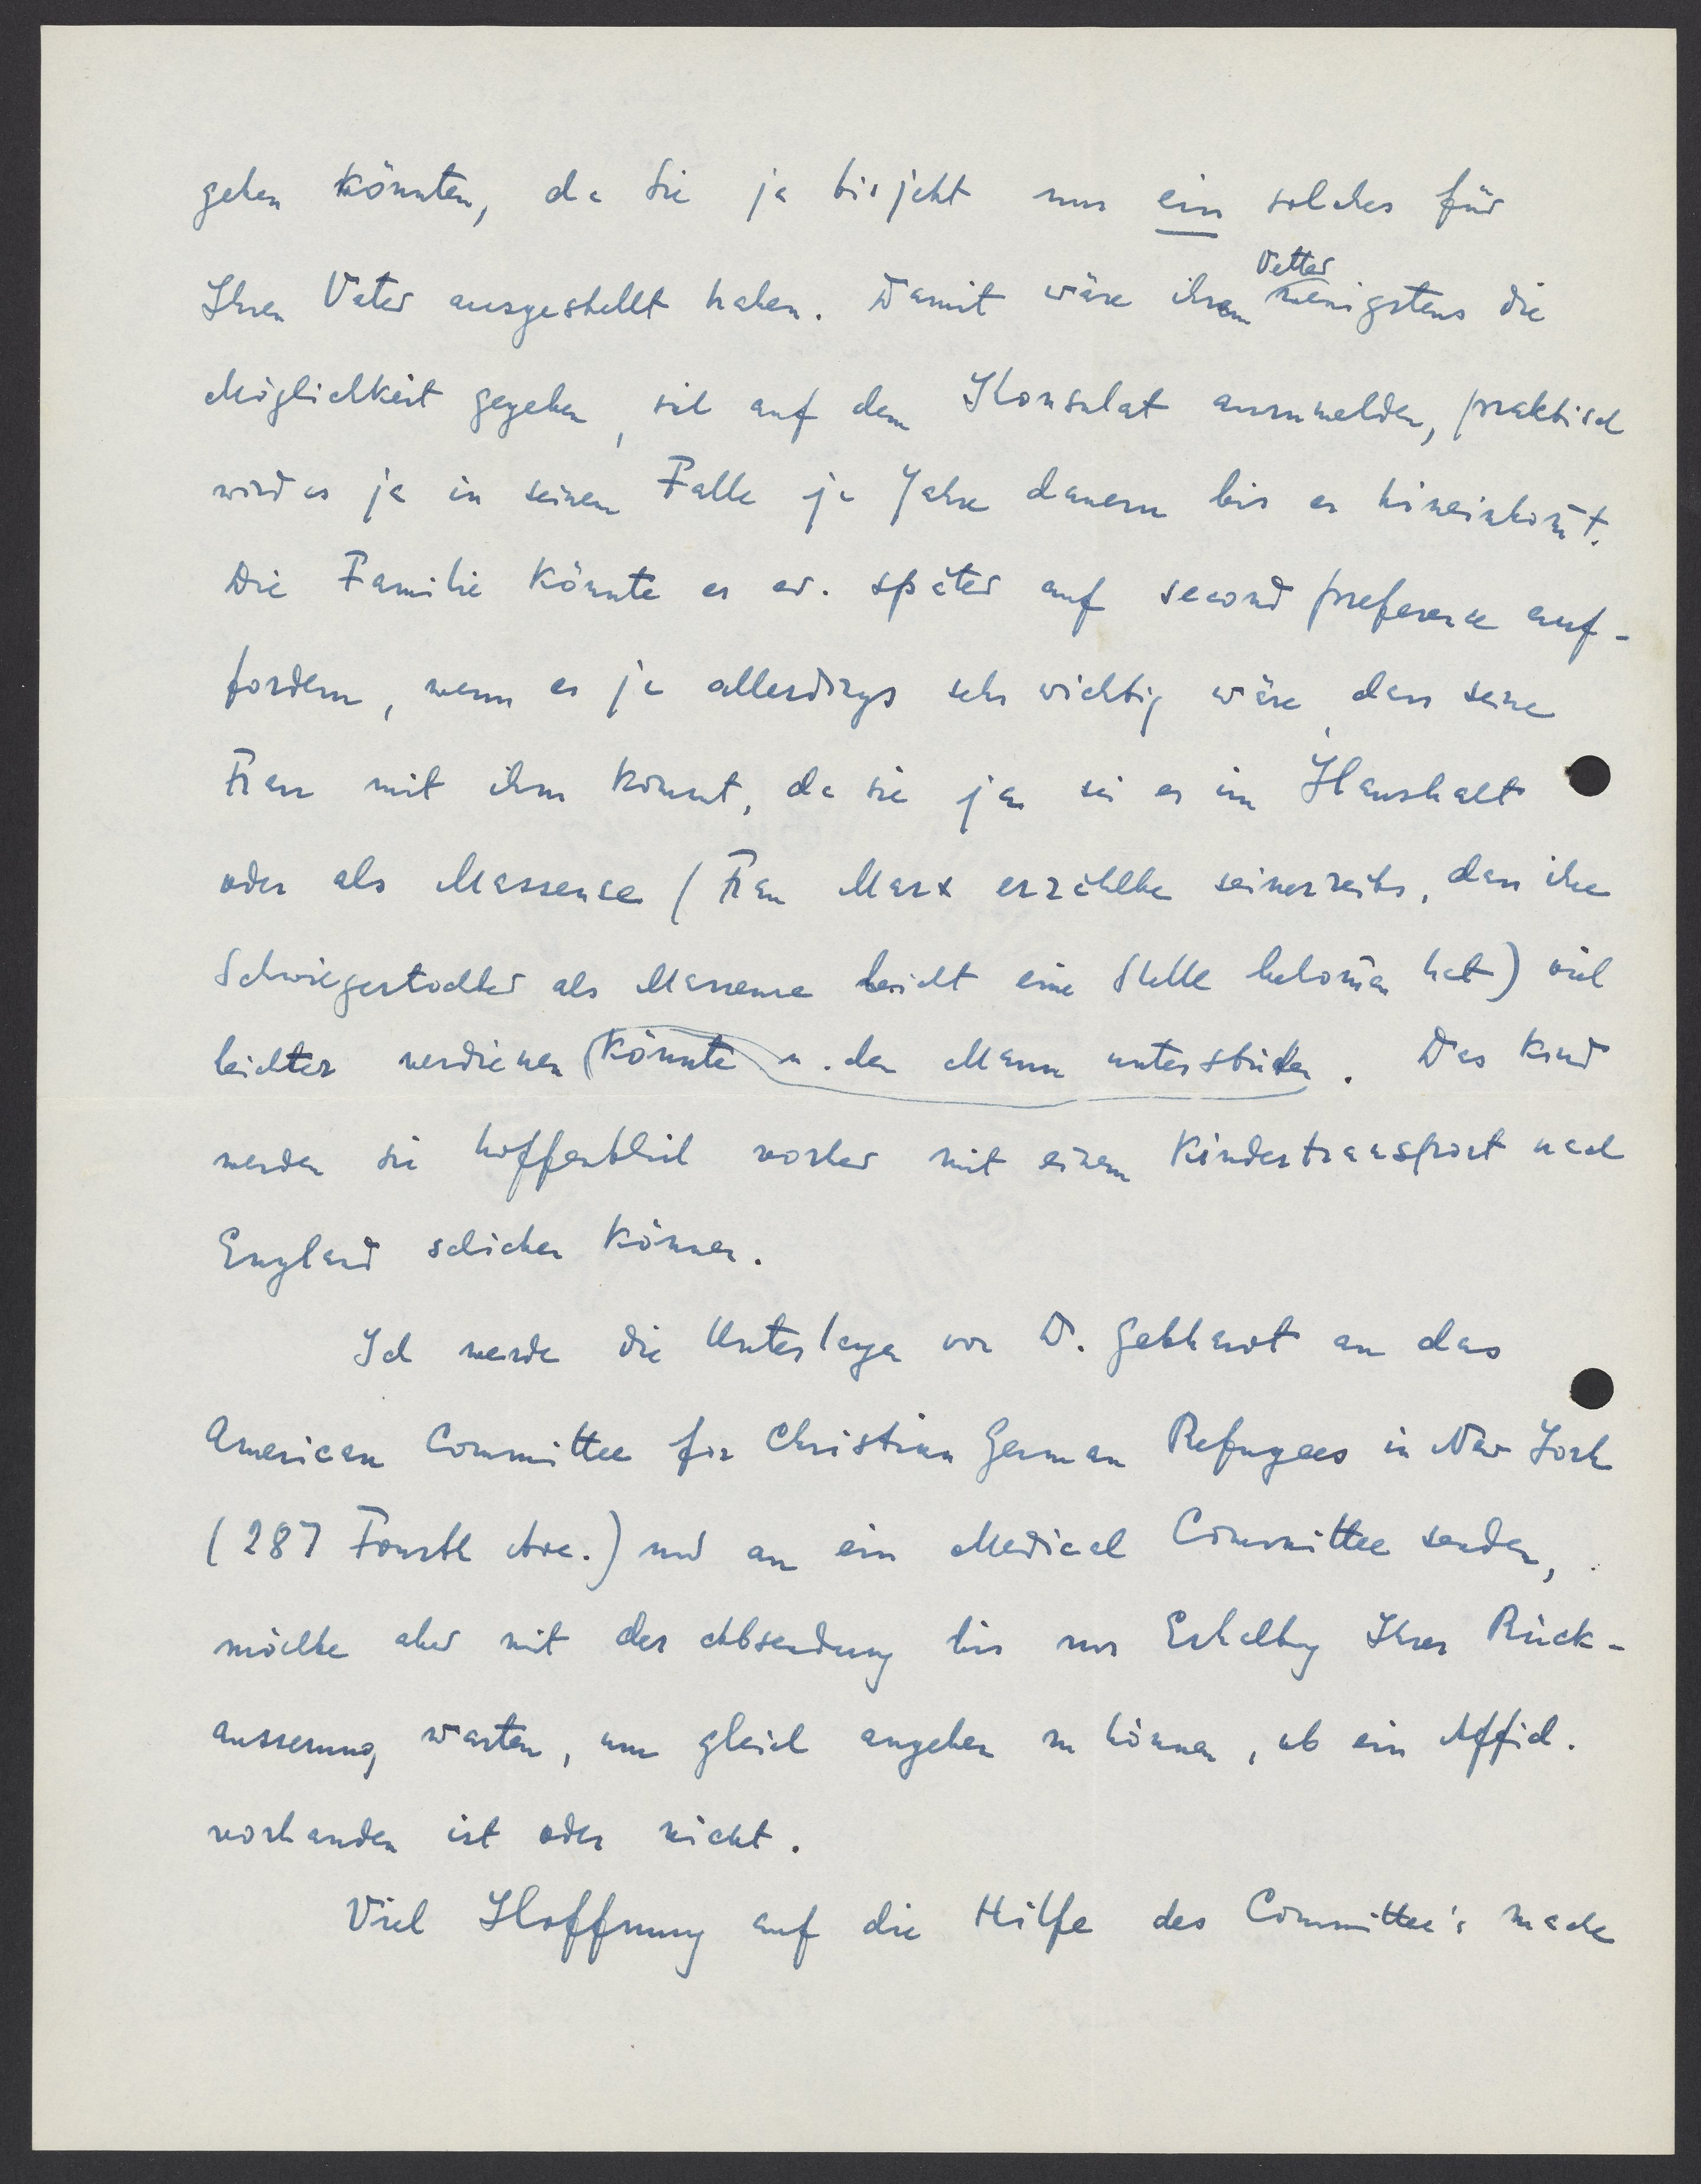 geben könnten, da Sie ja bis jetzt nur ein solches für
Ihren Vater ausgestellt haben. Damit wäre ihrem Vetter wenigstens die
Möglichkeit gegeben, sich auf dem Konsulat anzumelden, praktisch
wird es ja in seinem Falle ja Jahre dauern bis er hineinkom̄t.
Die Familie könnte er ev. später auf second preference auf-
fordern, wenn es ja allerdings sehr wichtig wäre, dass seine
Frau mit ihm kommt, da sie ja sei es im Haushalt
oder als Masseuse (Frau Marx erzählte seinerzeits, dass ihre
Schwiegertochter als Masseuse leicht eine Stelle bekom̄en hat) viel
leichter verdienen könnte u. den Mann unterstützen. Das Kind
werden sie hoffentlich vorher mit einem Kindertransport nach
England schicken können.
Ich werde die Unterlagen von D. Gebhardt an das
American Committee for Christian German Refugees in New York
(287 Fourth Ave.) und an ein Medical Committee senden,
möchte aber mit der Absendung bis zur Erhaltung Ihrer Rück-
äusserung warten, um gleich angeben zu können, ob ein Affid.
vorhanden ist oder nicht.
Viel Hoffnung auf die Hilfe des Committee's mache